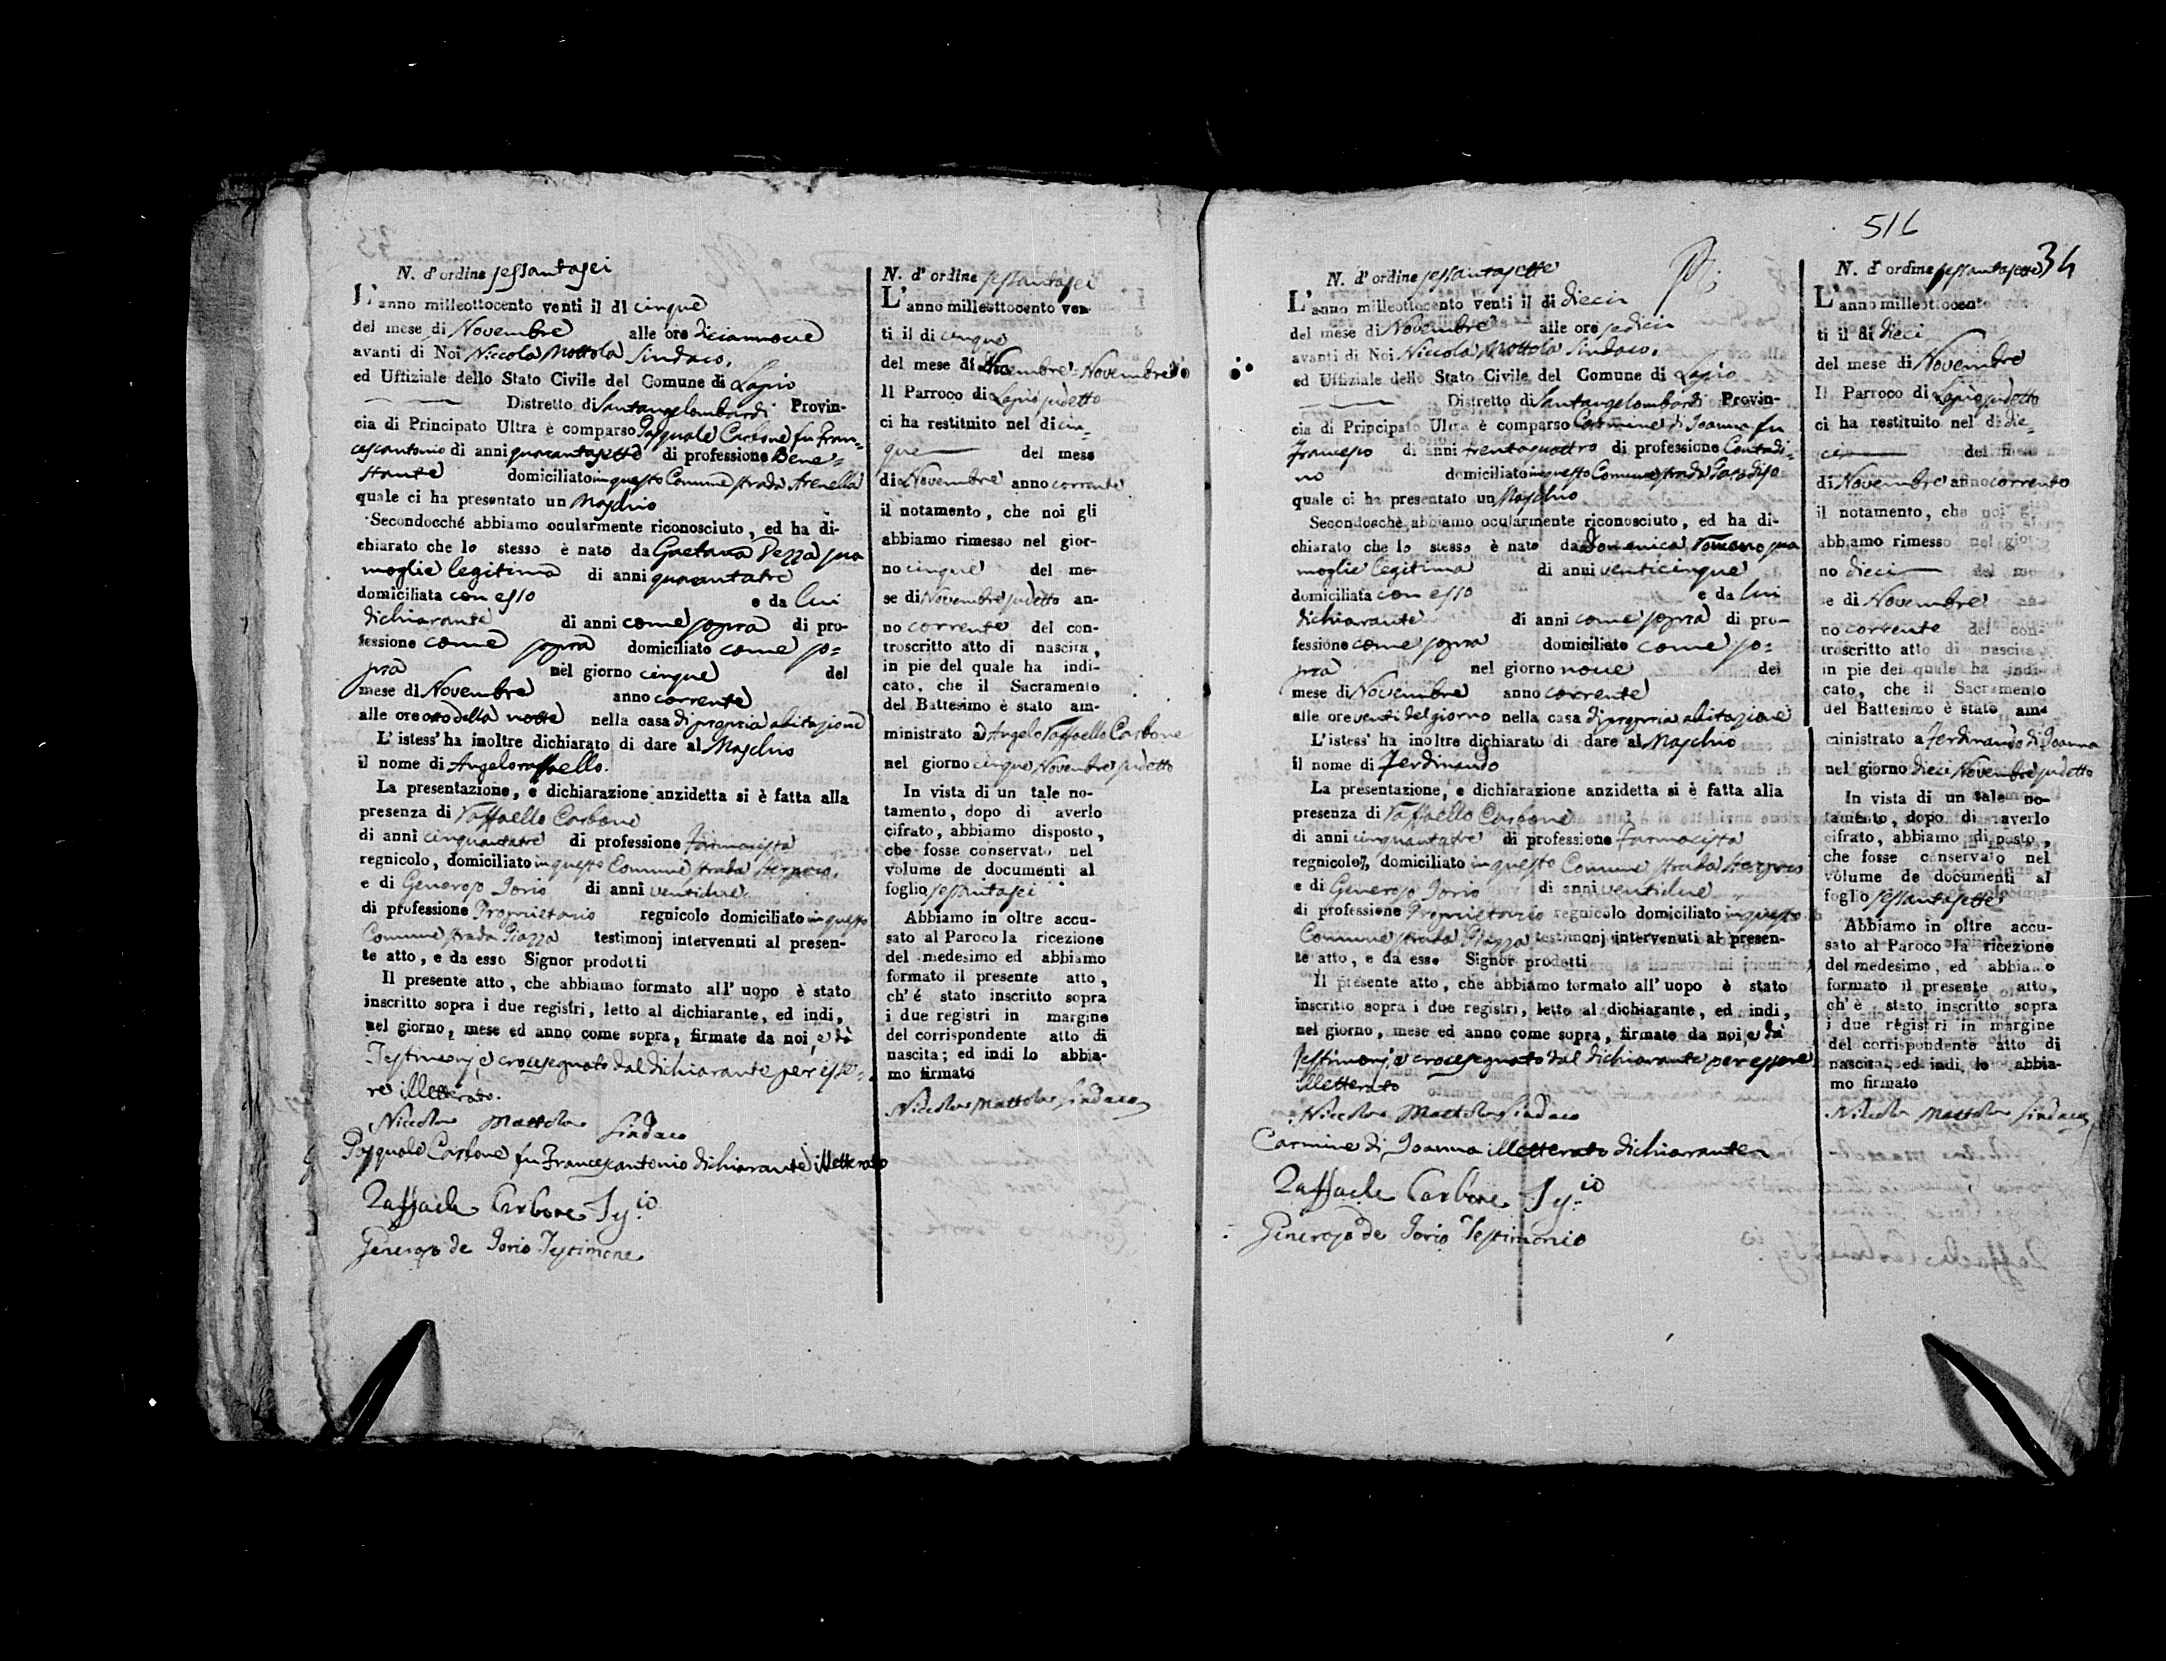 N. d'ordine sessantasei
L'anno milleottocento venti il dì cinque
del mese di Novembre alle ore diciannove
avanti di Noi Niccola Mottola Sindaco,
ed Uffiziale dello Stato Civile del Comune di Lapio
Distretto di Santangelombardi Provin-
cia di Principato Ultra è comparso Pasquale Carbone fu Fran=
cescantonio di anni quarantasette di professione Bene=
stante domiciliato in questo Comune strada Arenella
quale ci ha presentato un Maschio
Secondocché abbiamo ocularmente riconosciuto, ed ha di-
chiarato che lo stesso è nato da Gaetana Pezza sua
moglie legitima di anni quarantatre
domiciliata con esso e da lui
dichiarante di anni come sopra di pro-
fessione come sopra domiciliato come so=
pra nel giorno cinque del
mese di Novembre anno corrente
alle ore otto della notte nella casa di propria abitazione
L'istess' ha inoltre dichiarato di dare al Maschio
il nome di Angeloraffaello.
La presentazione, e dichiarazione anzidetta si è fatta alla
presenza di Raffaello Carbone
di anni cinquantatre di professione Farmacista
regnicolo, domiciliato in questo Comune strada
e di Generoso Iorio di anni ventidue
di professione Proprietario regnicolo domiciliato in questo
Comune strada Piazza testimonj intervenuti al presen-
te atto, e da esso Signor prodotti
Il presente atto, che abbiamo formato all' uopo è stato
inscritto sopra i due registri, letto al dichiarante, ed indi,
nel giorno, mese ed anno come sopra, firmate da noi, e da
Testimonj e crocesegnato dal dichiarante per esse=
re illetterato.
Niccola Mottola Sindaco
Pasquale Carbone fu Francescantonio dichiarante illetterato
Raffaele Carbone T.io
Generoso de Iorio Testimone
N. d'ordine sessantasei
L'anno milleottocento ven-
ti il di cinque
del mese di Novembre = Novembre
Il Parroco di Lapio sudetto
ci ha restituito nel di cin=
que del mese
di Novembre anno corrente
il notamento, che noi gli
abbiamo rimesso nel gior-
no cinque del me-
se di Novembre sudetto an-
no corrente del con-
troscritto atto di nascita,
in pie del quale ha indi-
cato, che il Sacramento
del Battesimo è stato am-
ministrato a Angelo Raffaello Carbone
nel giorno cinque Novembre sudetto
In vista di un tale no-
tamento, dopo di averlo
cifrato, abbiamo disposto,
che fosse conservato nel
volume de documenti al
foglio sessantasei
Abbiamo in oltre accu-
sato al Paroco la ricezione
del medesimo ed abbiamo
formato il presente atto,
ch'é stato inscritto sopra
i due registri in margine
del corrispondente atto di
nascita; ed indi lo abbia-
mo firmato
Niccola Mottola Sindaco
516
34
N. d'ordine sessantasette
L'anno milleottocento venti il di dieci
del mese di Novembre alle ore sedici
avanti di Noi Niccola Mottola Sindaco,
ed Uffiziale dello Stato Civile del Comune di Lapio
Distretto di Santangelombardi Provin-
cia di Principato Ultra è comparso Carmine di Ioanna fu
Francesco di anni trentaquattro di professione Contadi=
no domiciliato in questo Comune strada Paradiso
quale ci ha presentato un Maschio
Secondochè abbiamo ocularmente riconosciuto, ed ha di-
chiarato che lo stesso è nato da Domenica Romano sua
moglie legitima di anni venticinque
domiciliata con esso e da lui
dichiarante di anni come sopra di pro-
fessione come sopra domiciliato come so=
pra nel giorno nove del
mese di Novembre anno corrente
alle ore venti del giorno nella casa di propria abitazione
L'istess' ha inoltre dichiarato di dare al Maschio
il nome di Ferdinando
La presentazione, e dichiarazione anzidetta si è fatta alla
presenza di Raffaello Carbone
di anni cinquantatre di professione Farmacista
regnicolo, domiciliato in questo Comune strada
e di Generoso Iorio di anni ventidue
di professione Proprietario regnicolo domiciliato in questo
Comune strada Piazza testimonj intervenuti al presen-
te atto, e da esso Signor prodotti
Il presente atto, che abbiamo formato all' uopo è stato
inscritto sopra i due registri, letto al dichiarante, ed indi,
nel giorno, mese ed anno come sopra, firmato da noi, e da
Testimonj, e crocesegnato dal dichiarante per essere
illetterato
Niccola Mottola Sindaco
Carmine di Ioanna illetterato dichiarante
Raffaele Carbone T.io
Generoso de Iorio Testimonio
N. d'ordine sessantasette
L'anno milleottocento ven-
ti il di dieci
del mese di Novembre
Il Parroco di Lapio sudetto
ci ha restituito nel di die=
ci del mese
di Novembre anno corrente
il notamento, che noi gli
abbiamo rimesso nel gior-
no dieci del me-
se di Novembre an-
no corrente del con-
troscritto atto di nascita
in pie del quale ha indi-
cato, che il Sacramento
del Battesimo è stato am-
ministrato a Ferdinando di Ioanna
nel giorno dieci Novembre sudetto
In vista di un tale no-
tamento, dopo di averlo
cifrato, abbiamo disposto,
che fosse conservato nel
volume de documenti al
foglio sessantasette
Abbiamo in oltre accu-
sato al Paroco la ricezione
del medesimo, ed abbiamo
formato il presente atto,
ch'è stato inscritto sopra
i due registri in margine
del corrispondente atto di
nascita, ed indi lo abbia-
mo firmato
Niccola Mottola Sindaco